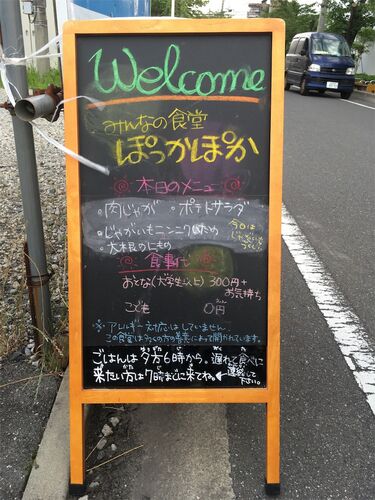 Welcome
みんなの食堂
ぽっかぽか
本日のメニュー
・肉じゃが ・ポテトサラダ
・じゃがいもニンニクいため
・大根のにもの
今日はじゃがいもづくし!
食事代
おとな(大学生以上) 300円+お気持ち
こども 0円
※アレルギー対応はしていません。
この食堂は多くの方の善意によって開かれています。
ごはんは夕方6時から。遅れて食べに
来たい方は7時までに来てね。←連絡して下さい。